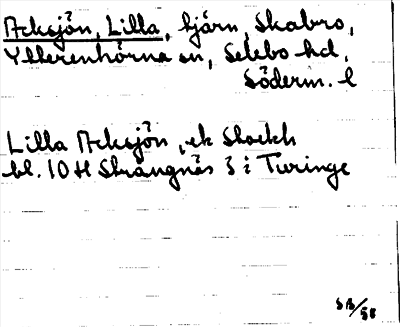 Acksjön, Lilla, tjärn, Skabro,
Ytterenhörna sn, Selebo hd,
Söderm. l
Lilla Acksjön, ek Stockh
bl. 10 H Strängnäs 3 i Turinge